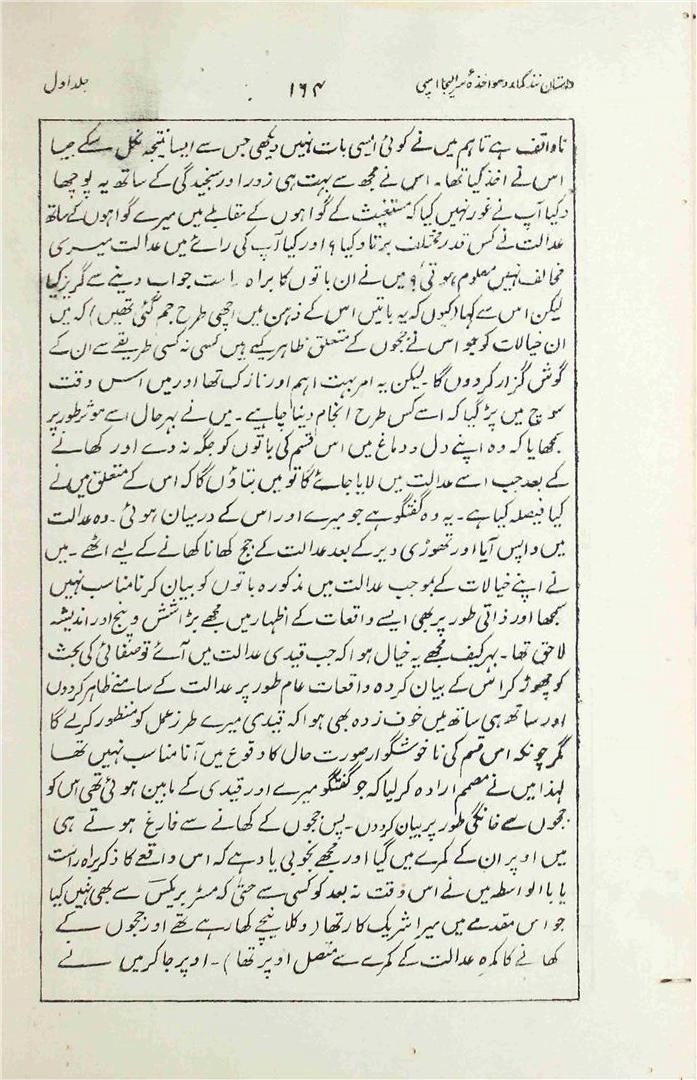 داستان نند کمار و مواخذۂ سر الیجا امپی ۱۶۴ جلد اول
ناواقف ہے تاہم میں نے کوئی ایسی بات نہیں دیکھی جس سے ایسا نتیجہ نکل سکے جیسا
اس نے اخذ کیا تھا۔ اس نے مجھ سے بہت ہی زور اور سنجیدگی کے ساتھ یہ پوچھا
"کیا آپ نے غور نہیں کیا کہ مستغیث کے گواہوں کے مقابلے میں میرے گواہوں کے ساتھ
عدالت نے کس قدر مختلف برتاؤ کیا؟ اور کیا آپ کی رائے میں عدالت میری
مخالف نہیں معلوم ہوتی"؟ میں نے ان باتوں کا براہ راست جواب دینے سے گریز کیا
لیکن اس سے کہا (کیوں کہ یہ باتیں اس کے ذہن میں اچھی طرح جم گئی تھیں) کہ میں
ان خیالات کو جو اس نے ججوں کے متعلق ظاہر کیے ہیں کسی نہ کسی طریقے سے ان کے
گوش گزار کر دوں گا۔ لیکن یہ امر بہت اہم اور نازک تھا اور میں اس وقت
سوچ میں پڑ گیا کہ اسے کس طرح انجام دینا چاہیے۔ میں نے بہر حال اسے موثر طور پر
سمجھایا کہ وہ اپنے دل و دماغ میں اس قسم کی باتوں کو جگہ نہ دے اور کھانے
کے بعد جب اسے عدالت میں لایا جائے گا تو میں بتاؤں گا کہ اس کے متعلق میں نے
کیا فیصلہ کیا ہے۔ یہ وہ گفتگو ہے جو میرے اور اس کے درمیان ہوئی۔ وہ عدالت
میں واپس آیا اور تھوڑی دیر کے بعد عدالت کے جج کھانا کھانے کے لیے اٹھے۔ میں
نے اپنے خیالات کے بموجب عدالت میں مذکورہ باتوں کو بیان کرنا مناسب نہیں
سمجھا اور ذاتی طور پر بھی ایسے واقعات کے اظہار میں مجھے بڑا شش و پنج اور اندیشہ
لاحق تھا۔ بہر کیف مجھے یہ خیال ہوا کہ جب قیدی عدالت میں آئے تو صفائی کی بحث
کو چھوڑ کر اس کے بیان کردہ واقعات عام طور پر عدالت کے سامنے ظاہر کر دوں
اور ساتھ ہی ساتھ میں خوف زدہ بھی ہوا کہ قیدی میرے طرز عمل کو منظور کرے گا
مگر چونکہ اس قسم کی ناخوشگوار صورت حال کا وقوع میں آنا مناسب نہیں تھا
لہذا میں نے مصمم ارادہ کر لیا کہ جو گفتگو میرے اور قیدی کے مابین ہوئی تھی اس کو
ججوں سے خانگی طور پر بیان کر دوں۔ پس ججوں کے کھانے سے فارغ ہوتے ہی
میں اوپر ان کے کمرے میں گیا اور مجھے بخوبی یاد ہے کہ اس واقعے کا ذکر براہ راست
یا بالواسطہ میں نے اس وقت نہ بعد کو کسی سے حتیٰ کہ مسٹر بریکس سے بھی نہیں کیا
جو اس مقدمے میں میرا شریک کار تھا (وکلا نیچے کھا رہے تھے اور ججوں کے
کھانے کا کمرہ عدالت کے کمرے سے متصل اوپر تھا)۔ اوپر جا کر میں نے